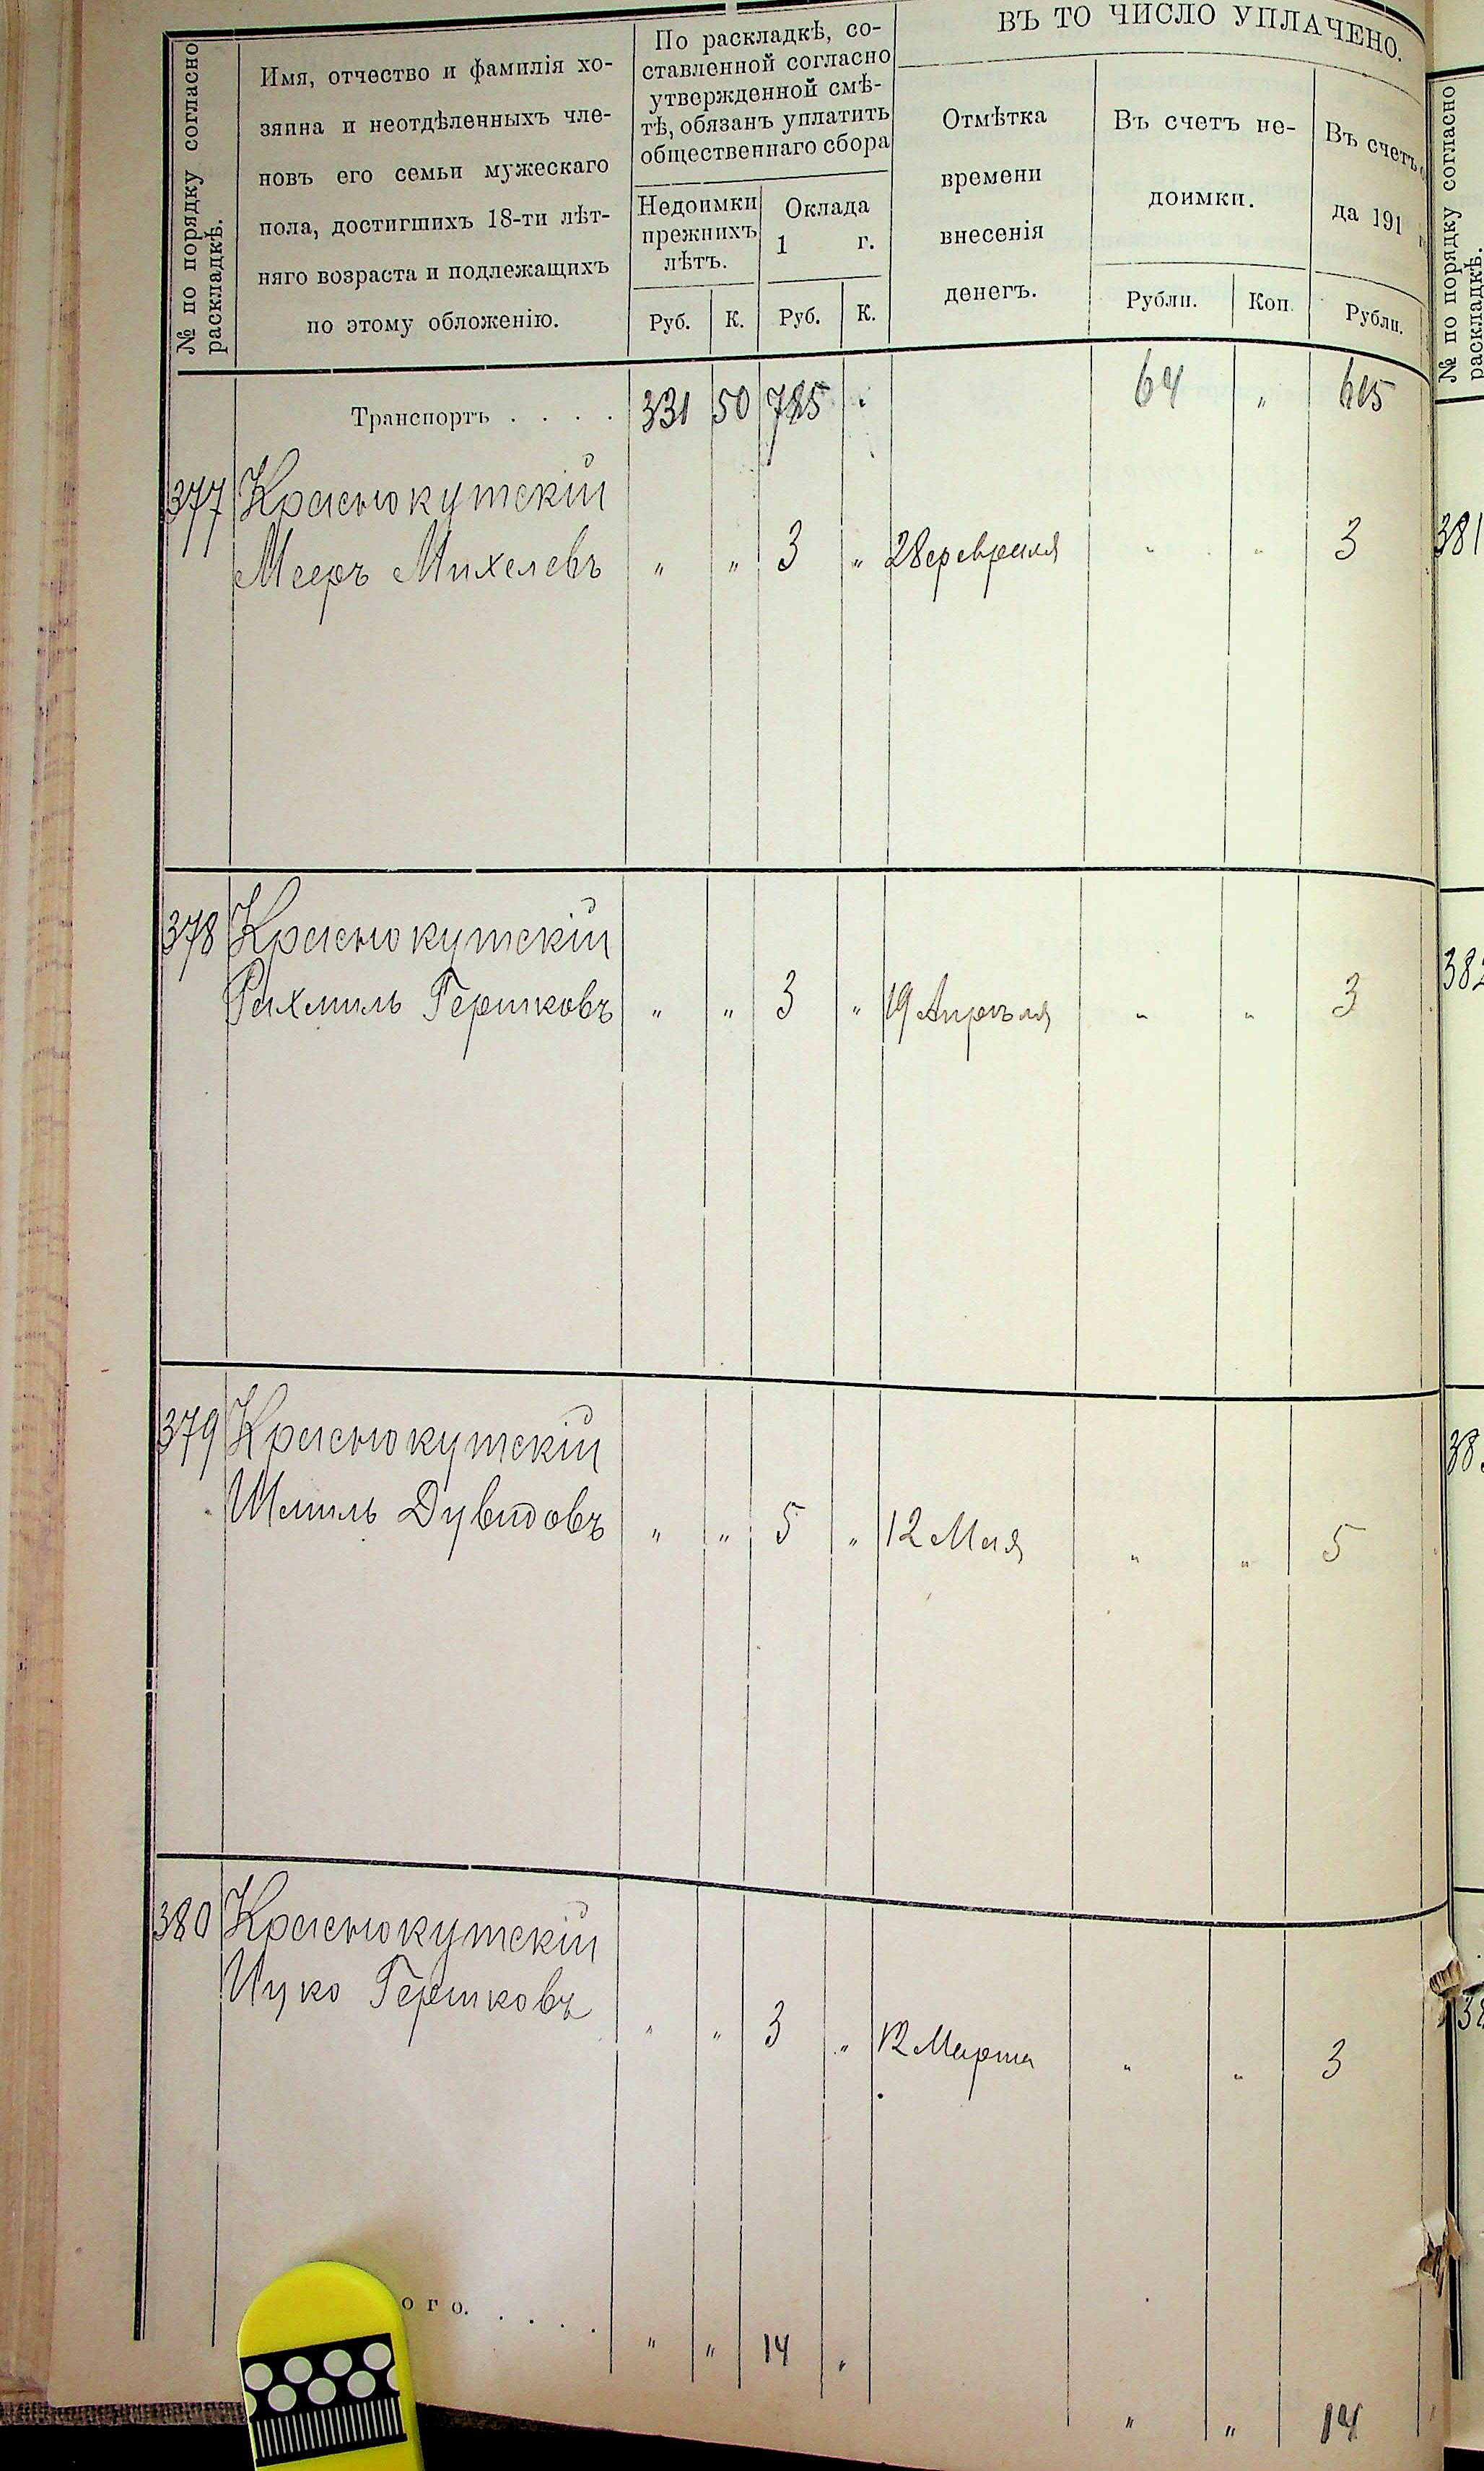 № по порядку согласно
раскладкѣ.
Имя, отчество и фамилія хо-
зяина и неотдѣленныхъ чле-
новъ его семьи мужескаго
пола, достигшихъ 18-ти лѣт-
няго возраста и подлежащихъ
по этому обложенію.
По раскладкѣ, со-
ставленной согласно
утвержденной смѣ-
тѣ, обязанъ уплатить
общественнаго сбора
Недоимки
прежнихъ
лѣтъ.
Оклада
1 г.
Руб. К. Руб. К.
ВЪ ТО ЧИСЛО УПЛАЧЕНО.
Отмѣтка
времени
внесенія
денегъ.
Въ счетъ не-
доимки.
Рубли. Коп.
Въ счетъ
да 191
Рубли.
Транспортъ . . . . 331 50 785 64 " 615
377 Краснокутскій
Мееръ Михелевъ " " 3 " 28 февраля " " 3
378 Краснокутскій
Рахмиль Гершковъ " " 3 " 19 Апрѣля " " 3
379 Краснокутскій
Шмиль Дувидовъ " " 5 " 12 Мая " " 5
380 Краснокутскій
Ицко Гершковъ " " 3 " 12 Марта " " 3
ого. . . . . " " 14 " " " 14
№ по порядку согласно
раскладкѣ.
381